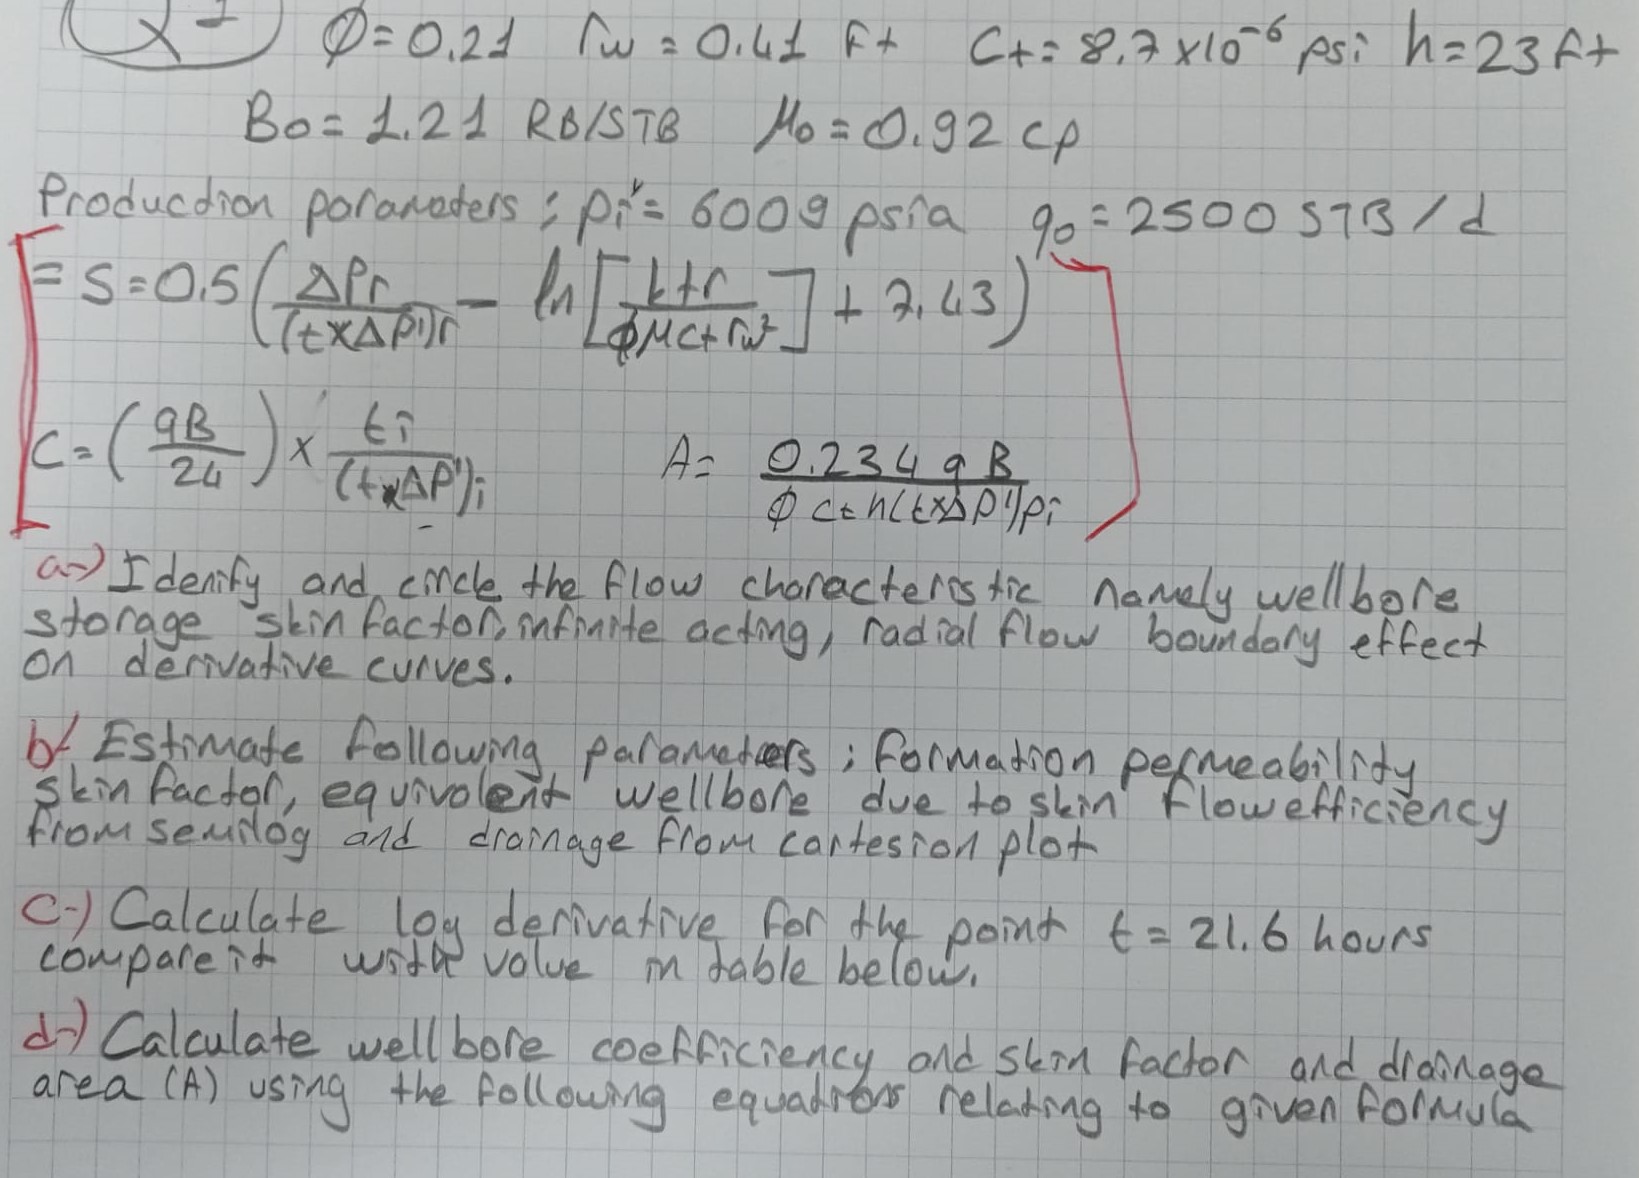 Φ=0.21 rw = 0.41 Ft Ct= 8.7×10⁻⁶ psi h=23ft
Bo= 1.21 RB/STB μo=0.92 cp
Production parameters ; pi= 6009 psia qo=2500 STB/d
= S=0.5 ( ΔPr / (t×ΔP')r - ln [ ktr / ΦMct rw² ] + 7.43 )
C=( qB / 24 ) × ti / (t×ΔP')i A= 0.234 q B / Φ ct h(t×ΔP')pi
a-) Idenify and circle the flow characteristic namely wellbore
storage skin factor, infinite acting, radial flow boundary effect
on derivative curves.
b-) Estimate following parameters ; formation permeability
skin factor, equivolent wellbore due to skin flow efficiency
from semilog and drainage from cartesion plot
c-) Calculate log derivative for the point t = 21.6 hours
compare it with value in table below.
d-) Calculate wellbore coefficiency and skin factor and drainage
area (A) using the following equations relating to given formula